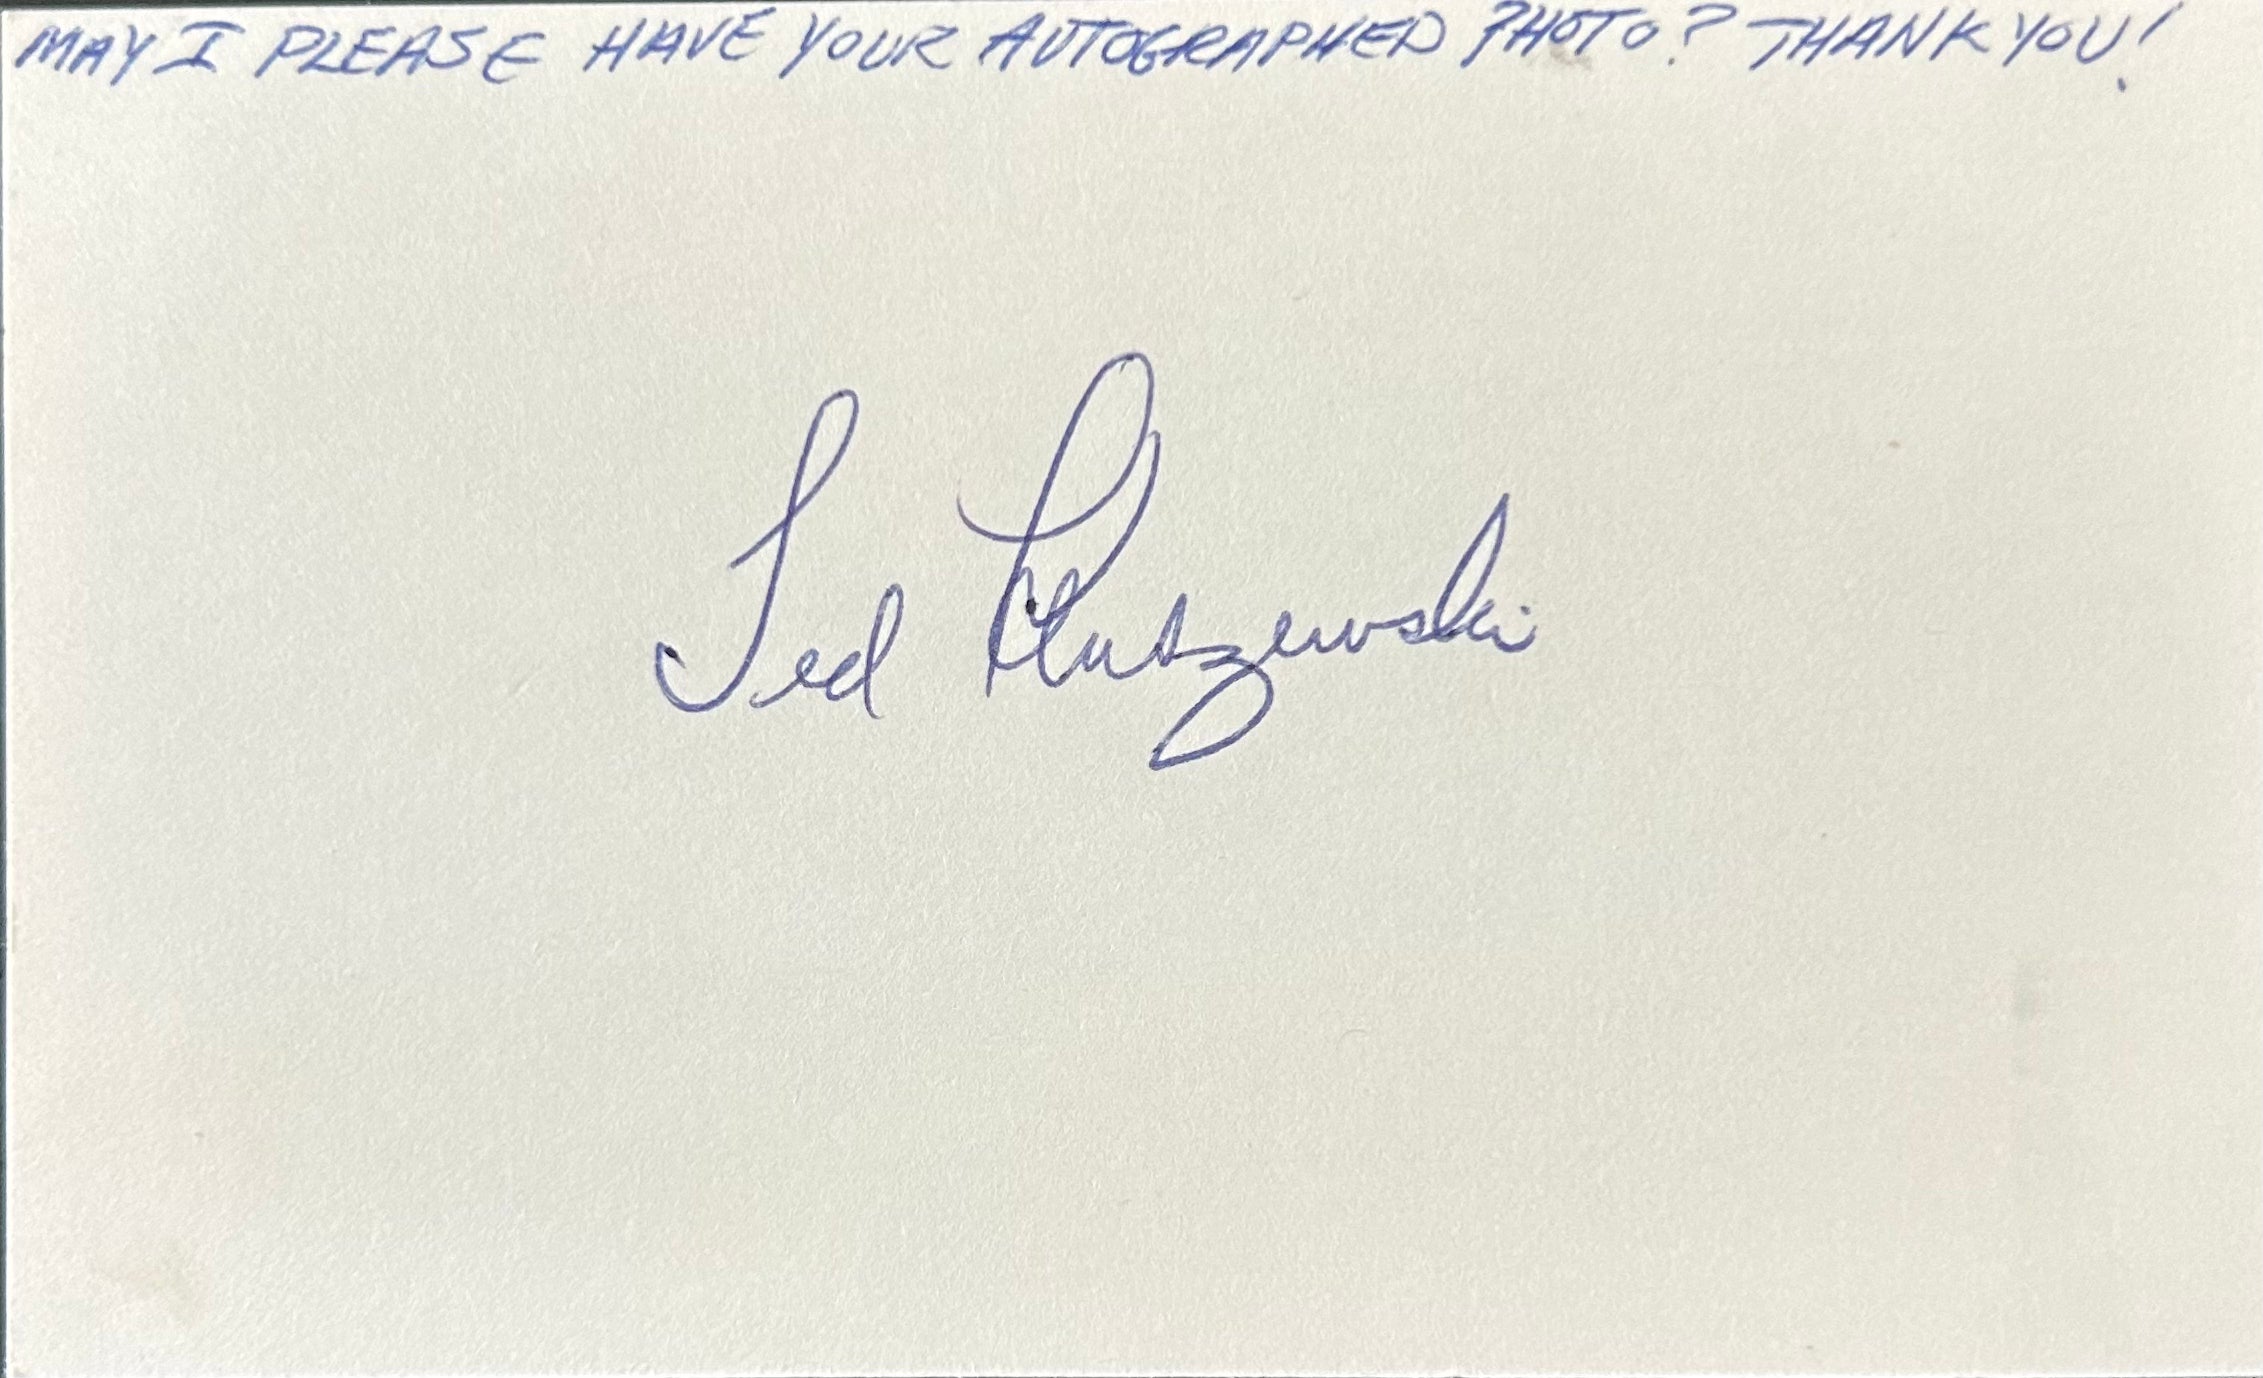 MAY I PLEASE HAVE YOUR AUTOGRAPHED PHOTO? THANK YOU!
Ted Kluszewski